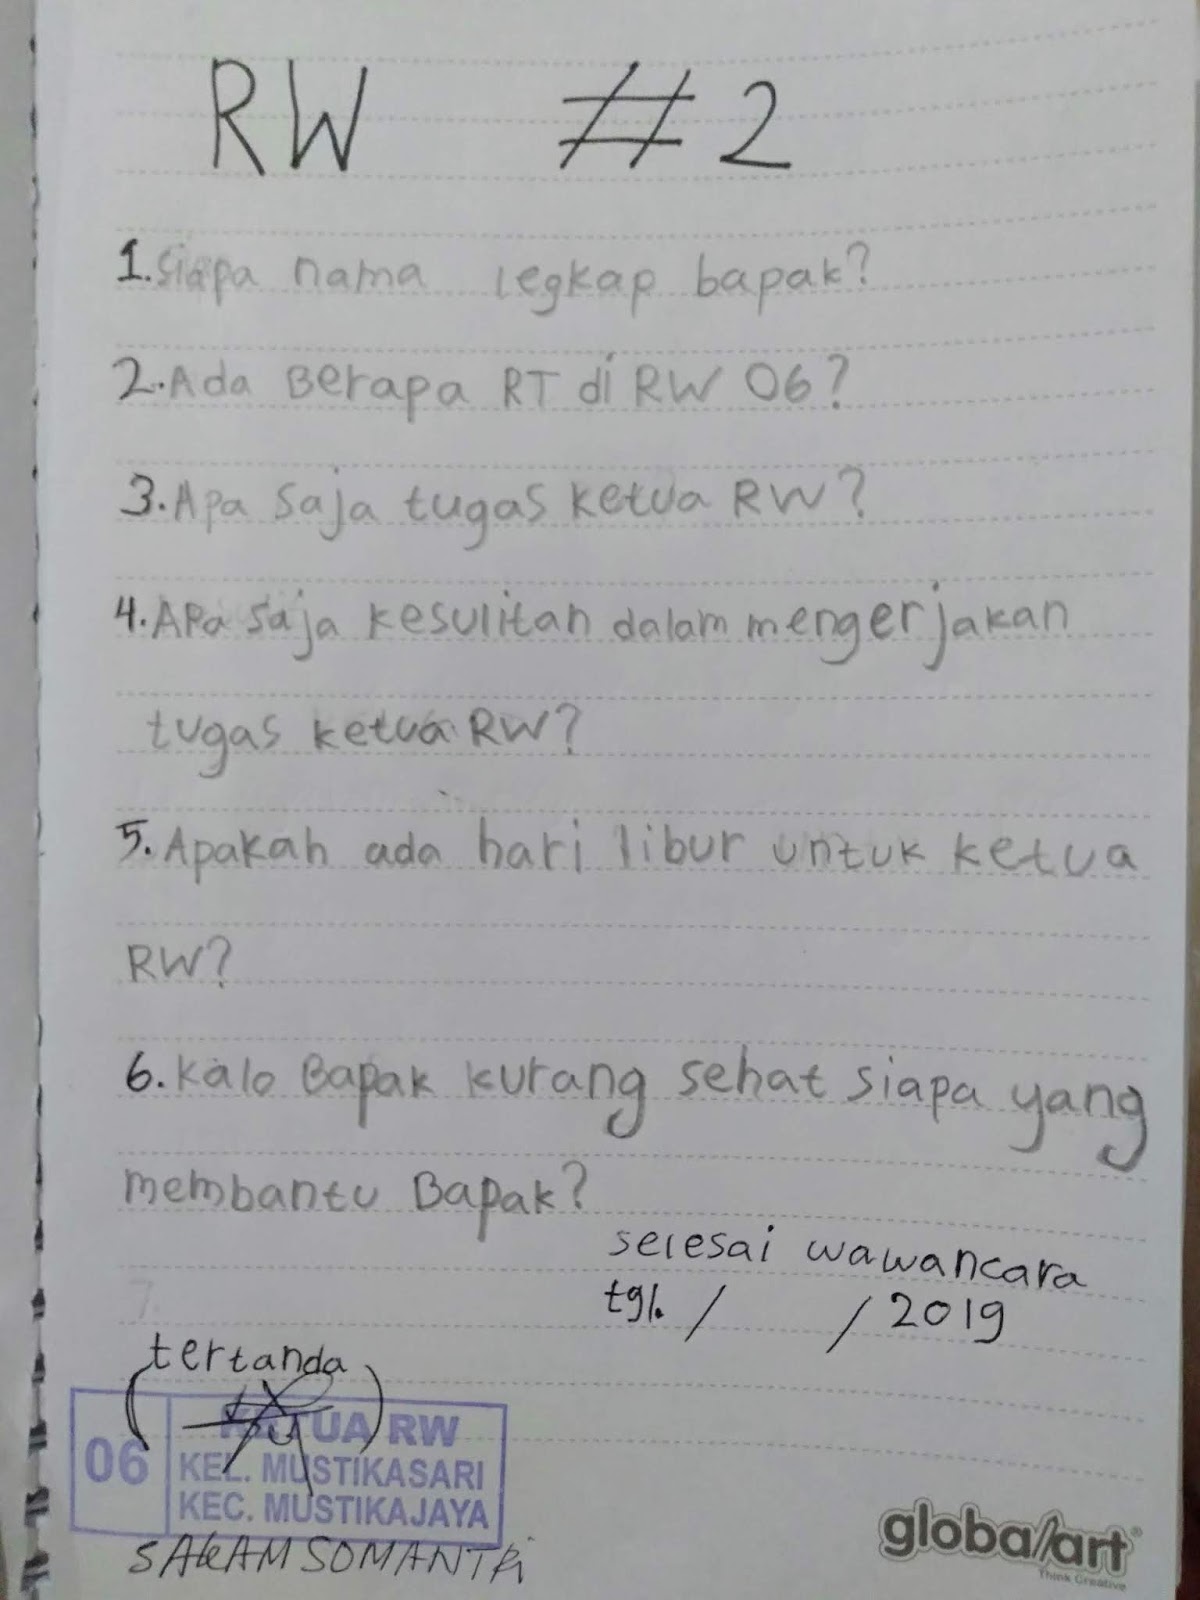 RW #2
1. Siapa nama legkap bapak?
2. Ada Berapa RT di RW 06?
3. Apa saja tugas ketua RW?
4. APa saja kesulitan dalam mengerjakan
tugas ketua RW?
5. Apakah ada hari libur untuk ketua
RW?
6. Kalo Bapak kurang sehat siapa yang
membantu Bapak?
selesai wawancara
tgl. / / 2019
7.
(tertanda)
06
KETUA RW
KEL. MUSTIKASARI
KEC. MUSTIKAJAYA
SOMANTRi
globalart®
Think Creative